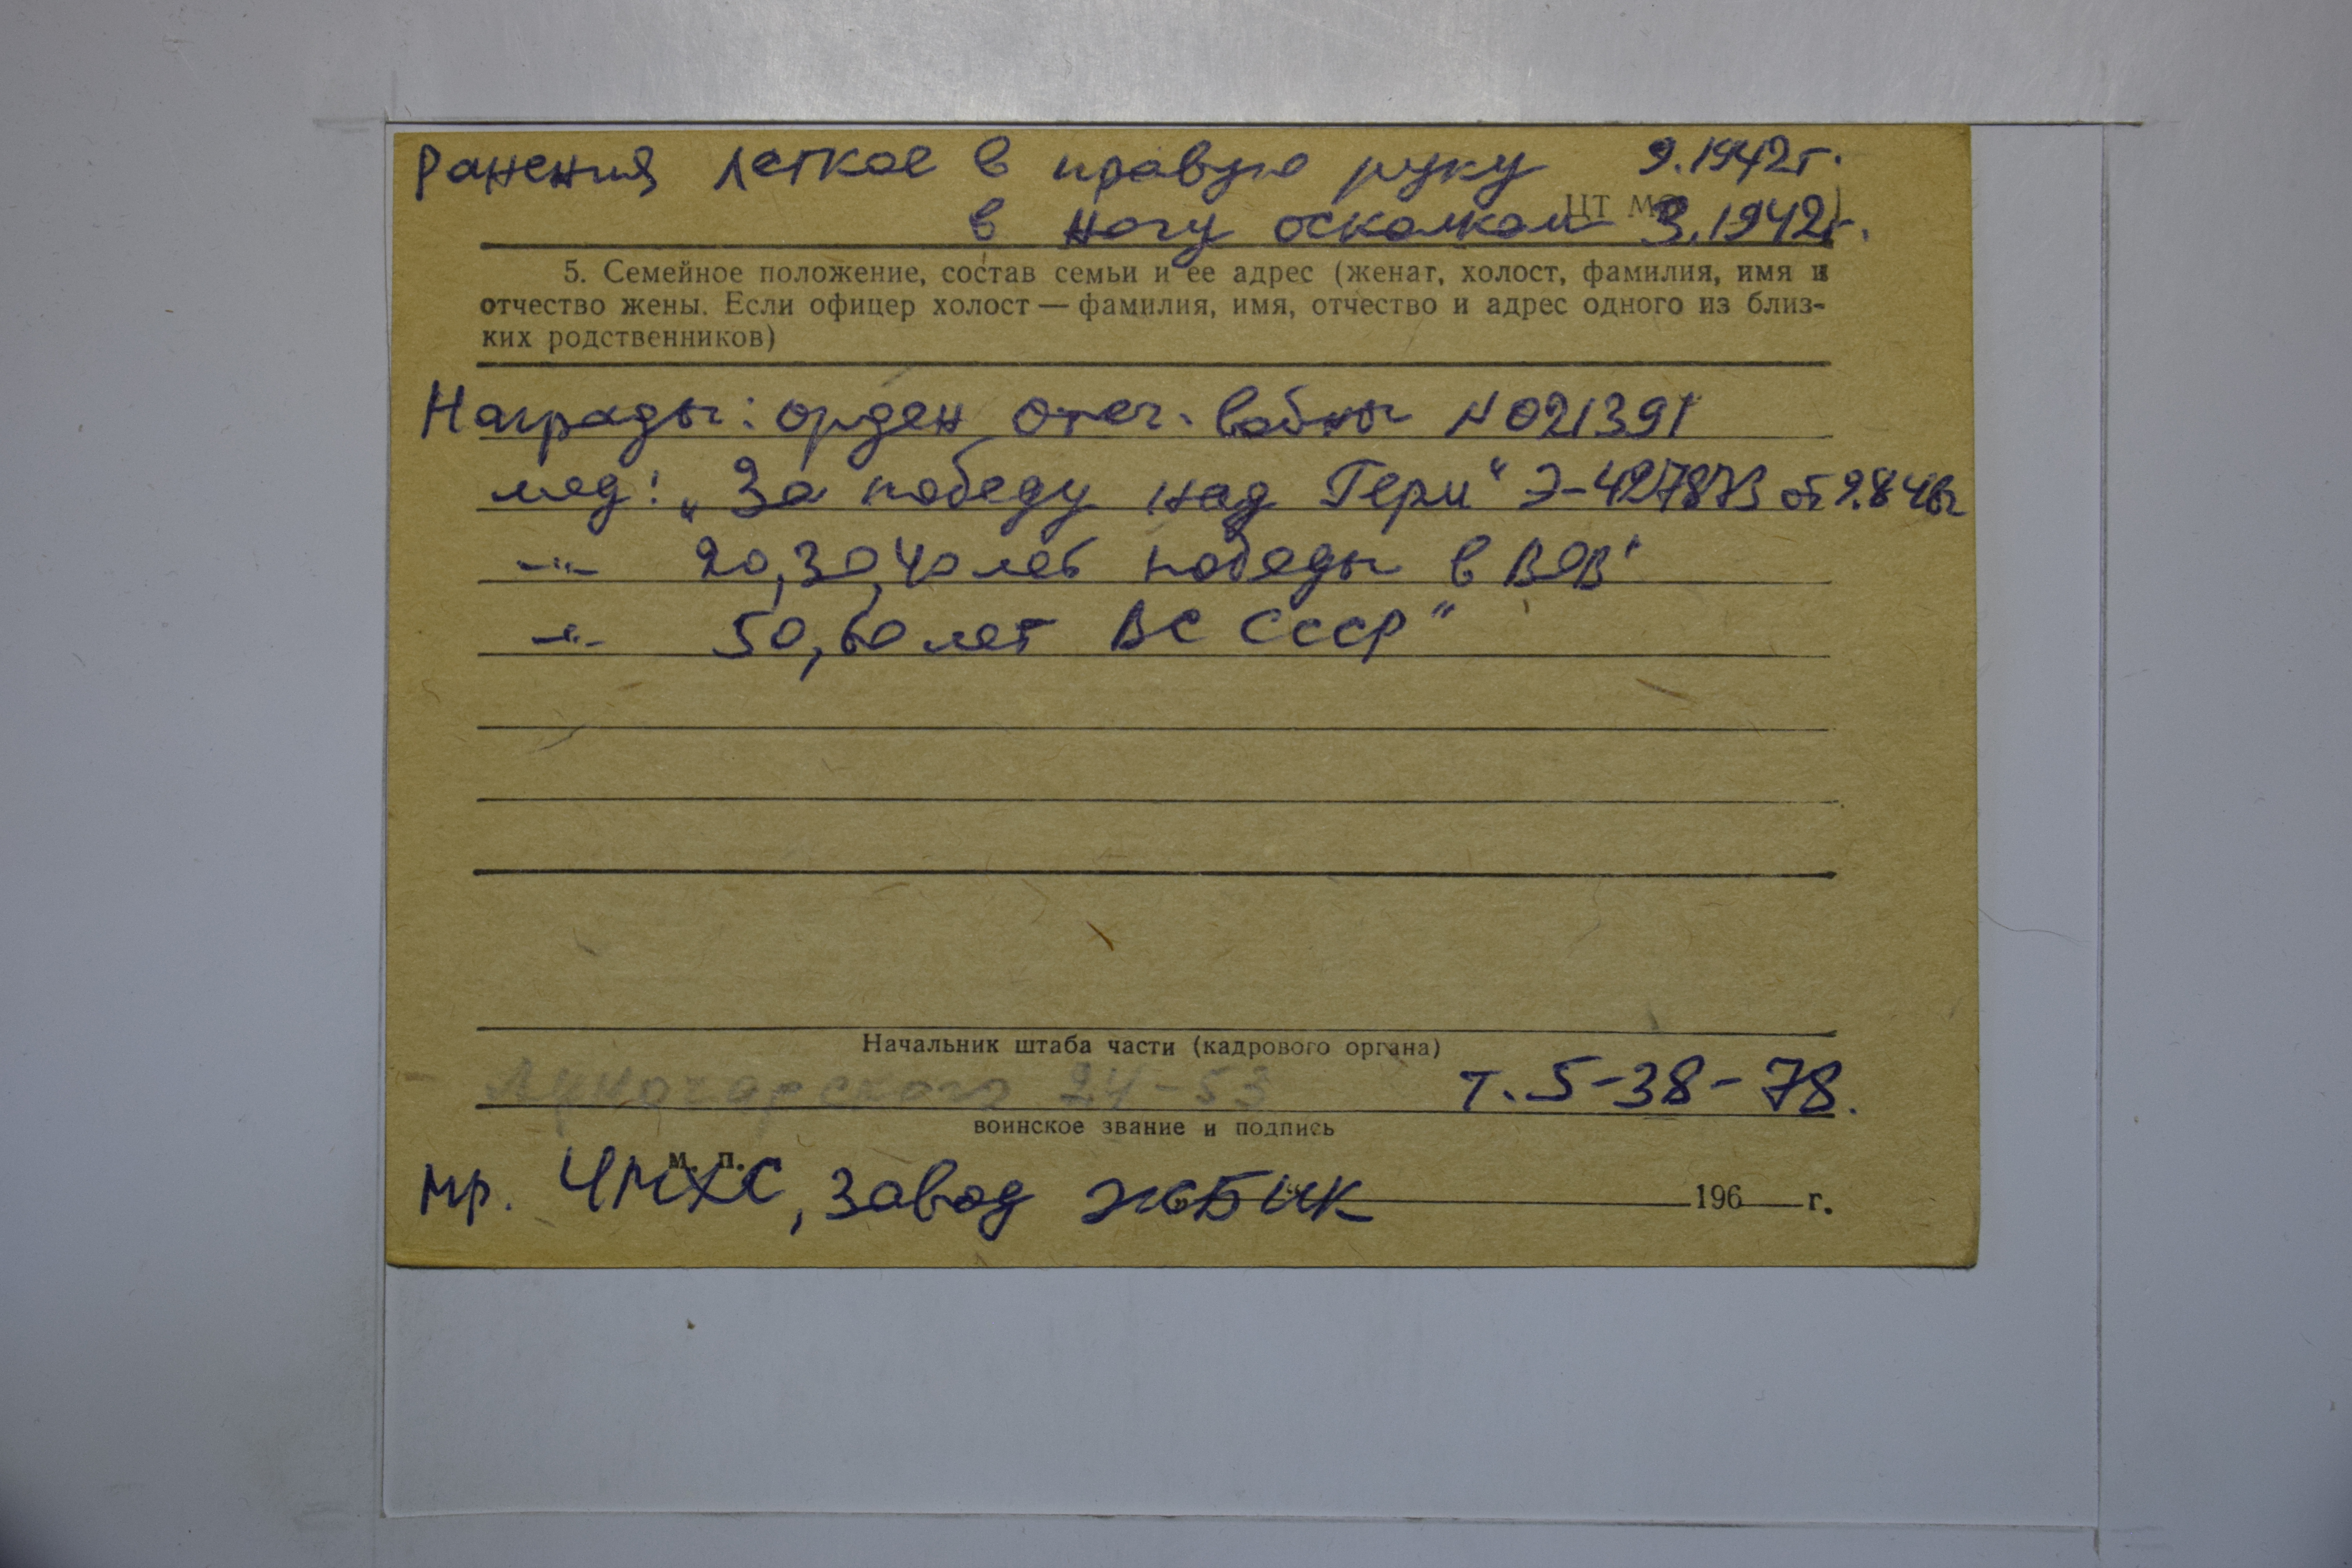 Ранения легкое в правую руку 9.1942г.
ЦТ М
в ногу осколком 3.1942г.
5. Семейное положение, состав семьи и ее адрес (женат, холост, фамилия, имя и
отчество жены. Если офицер холост — фамилия, имя, отчество и адрес одного из близ-
ких родственников)
Награды: орден Отеч. войны № 021391
мед: „За победу над Герм" Э-427873 от 9.8 46г
—"— 20,30,40 лет победы в ВОВ"
—"— 50,60 лет ВС СССР"
Начальник штаба части (кадрового органа)
Луначарского 24-53 т. 5-38-78.
воинское звание и подпись
м. п.
мр. ЧМХС, завод ЖБИК 196 г.